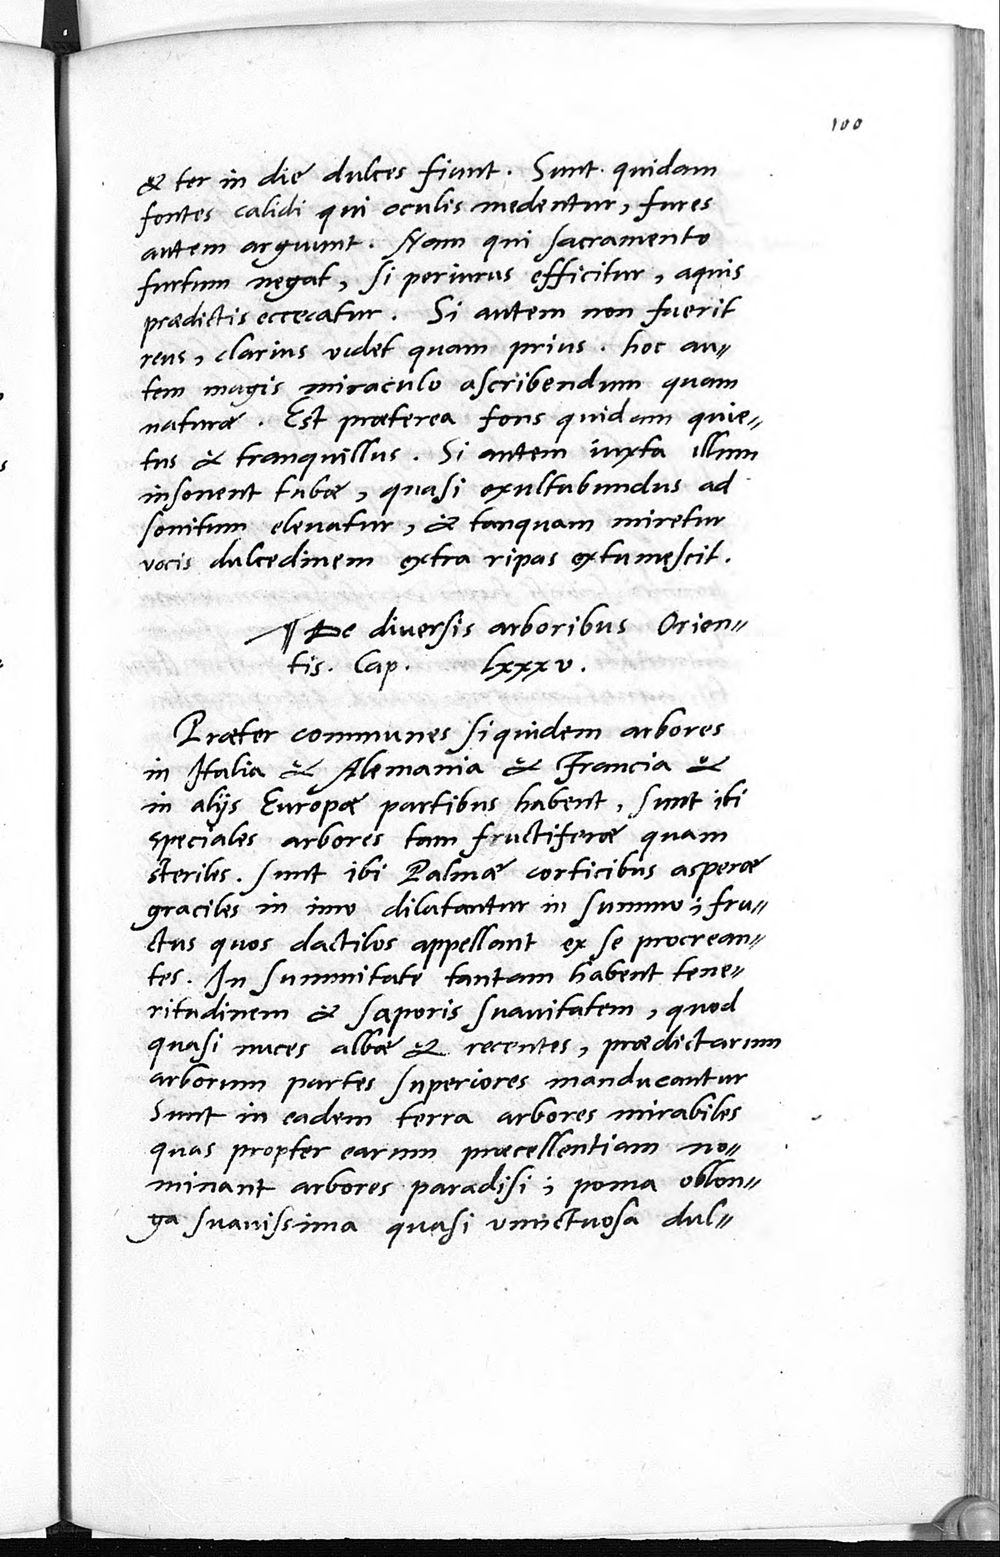 100
& ter in die dulces fiunt. Sunt quidam
fontes calidi qui oculis medentur, fures
autem arguunt. Nam qui sacramento
furtum negat, si periurus efficitur, aquis
prædictis eccecatur. Si autem non fuerit
reus, clarius videt quam prius. hoc au〃
tem magis miraculo ascribendum quam
naturæ. Est præterea fons quidam quie〃
tus & tranquillus. Si autem iuxta illum
insonent tubæ, quasi exultabundus ad
sonitum eleuatur, & tanquam miretur
vocis dulcedinem extra ripas extumescit.
¶ De diuersis arboribus Orien〃
tis. Cap. lxxxv.
Præter communes siquidem arbores
in Italia & Alemania & Francia &
in alijs Europæ partibus habent, sunt ibi
speciales arbores tam fructiferæ quam
steriles. Sunt ibi Palmæ corticibus asperæ
graciles in imo dilatantur in summo; fru〃
ctus quos dactilos appellant ex se procrean〃
tes. In summitate tantam habent tene〃
ritudinem & saporis suauitatem, quod
quasi nuces albæ & recentes, prædictarum
arborum partes superiores manducantur
Sunt in eadem terra arbores mirabiles
quas propter earum præcellentiam no〃
minant arbores paradisi; poma oblon〃
ga suauissima quasi vnnctuosa dul〃